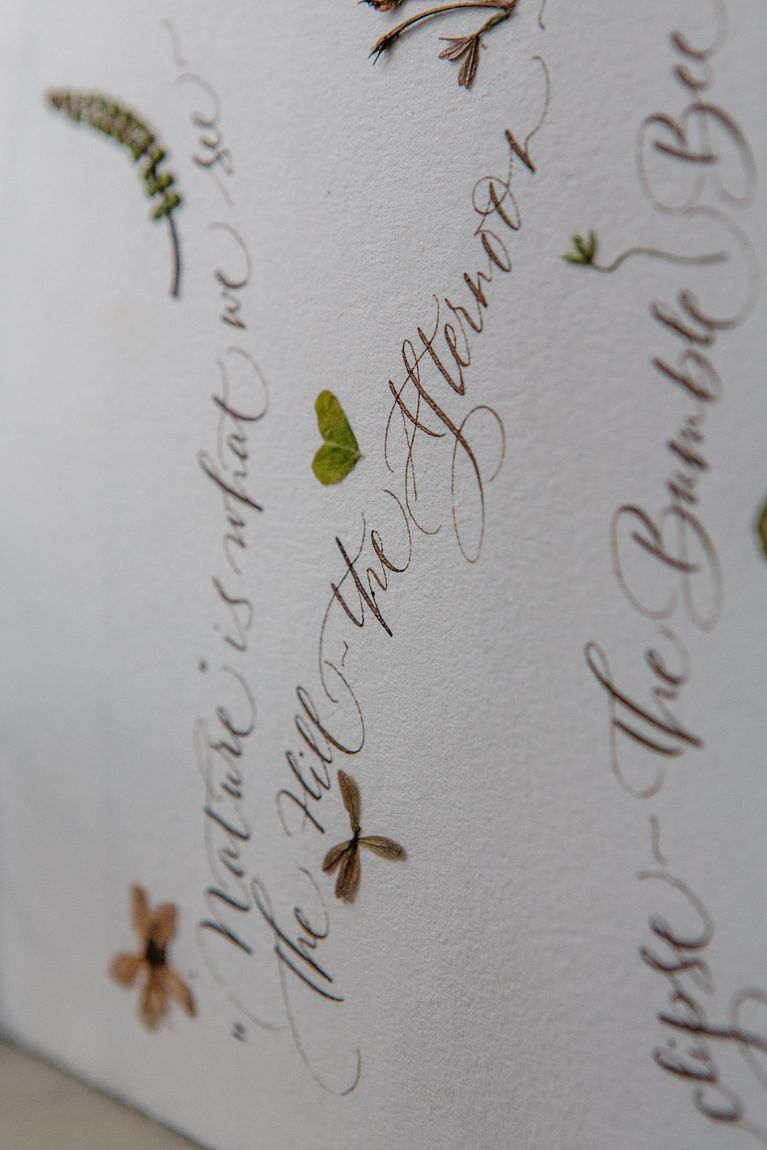 "Nature" is what we see ~
The Hill ~ the Afternoon
clipse ~ The Bumble Bee